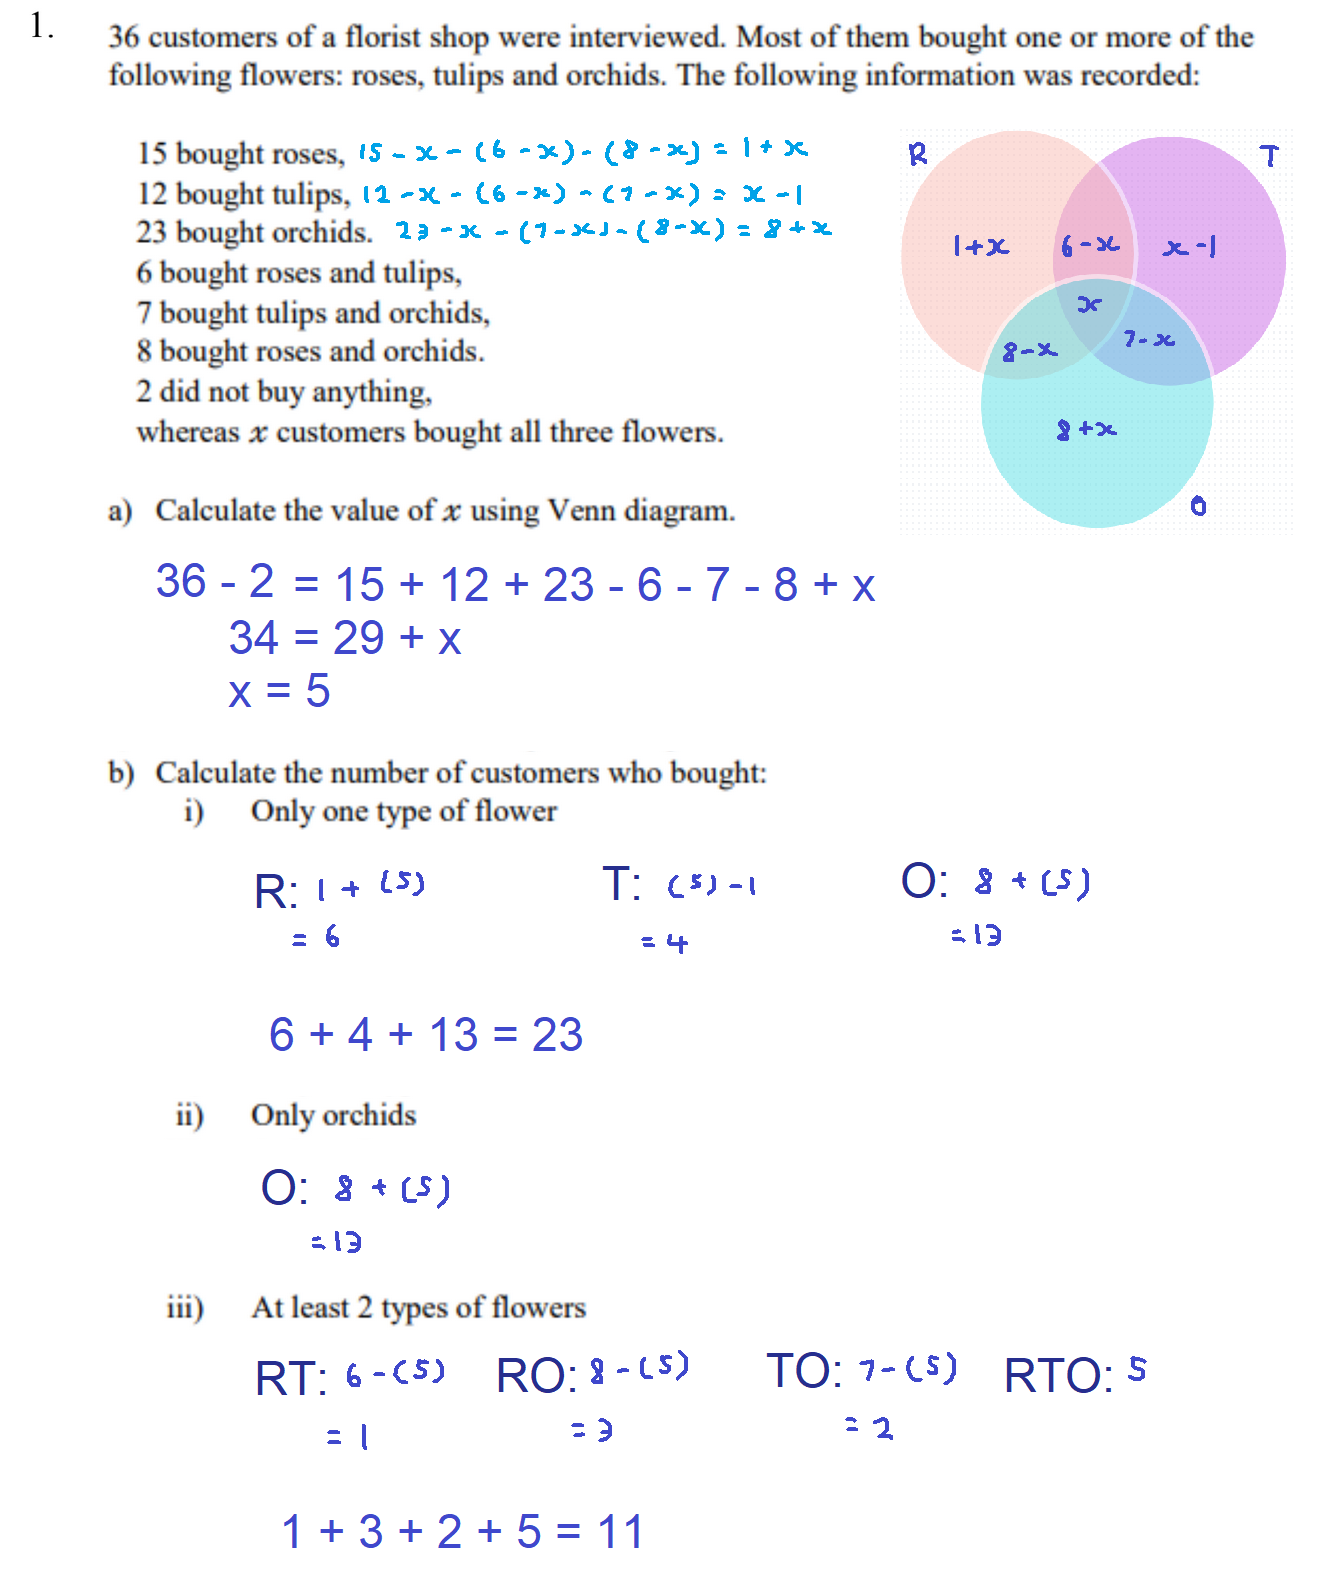 1.
36 customers of a florist shop were interviewed. Most of them bought one or more of the
following flowers: roses, tulips and orchids. The following information was recorded:
15 bought roses, 15 - x - (6 - x) - (8 - x) = 1 + x
12 bought tulips, 12 - x - (6 - x) - (7 - x) = x - 1
23 bought orchids. 23 - x - (7 - x) - (8 - x) = 8 + x
6 bought roses and tulips,
7 bought tulips and orchids,
8 bought roses and orchids.
2 did not buy anything,
whereas x customers bought all three flowers.
R T
1+x 6-x x-1
x
8-x 7-x
8+x
O
a) Calculate the value of x using Venn diagram.
36 - 2 = 15 + 12 + 23 - 6 - 7 - 8 + x
34 = 29 + x
x = 5
b) Calculate the number of customers who bought:
i) Only one type of flower
R: 1 + (5) T: (5) - 1 O: 8 + (5)
= 6 = 4 = 13
6 + 4 + 13 = 23
ii) Only orchids
O: 8 + (5)
= 13
iii) At least 2 types of flowers
RT: 6 - (5) RO: 8 - (5) TO: 7 - (5) RTO: 5
= 1 = 3 = 2
1 + 3 + 2 + 5 = 11